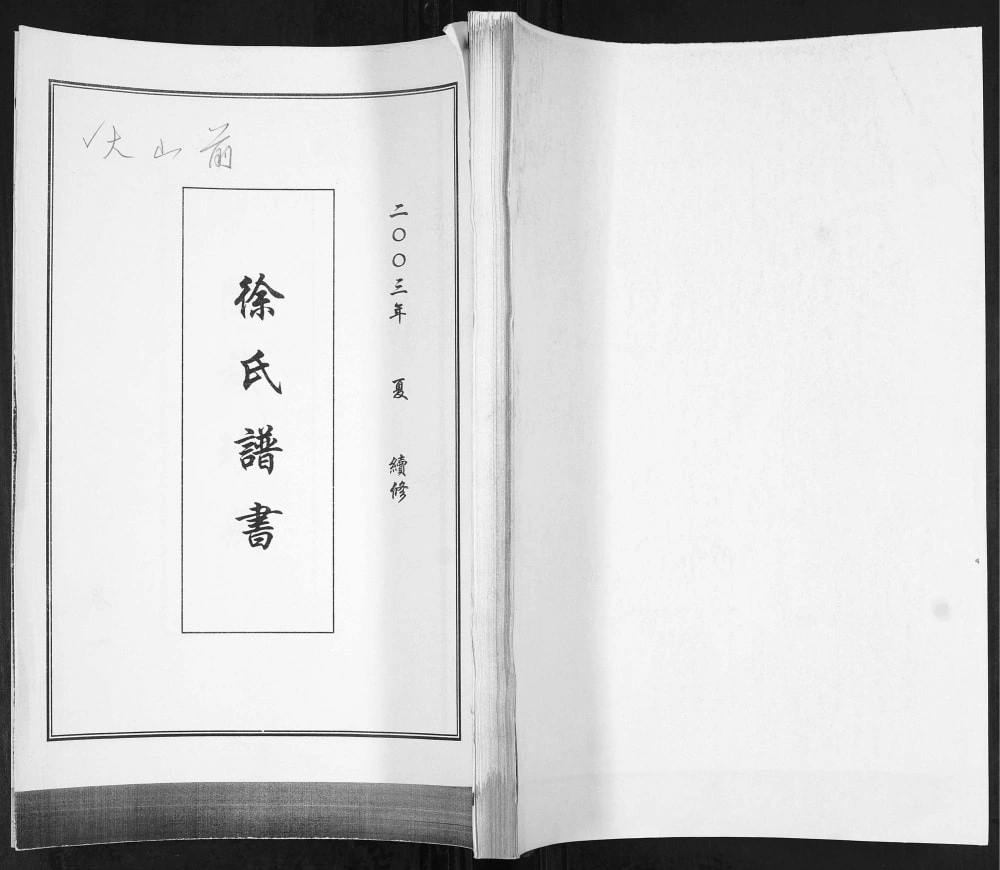 二〇〇三年 夏 續修
徐氏譜書
大山前